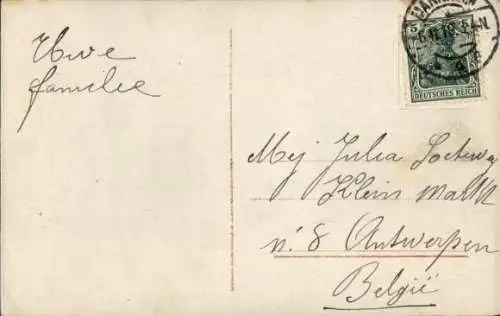 Uwe
familie
5
DEUTSCHES REICH
Mej Julia
Klein Markt
n: 8 Antwerpen
België